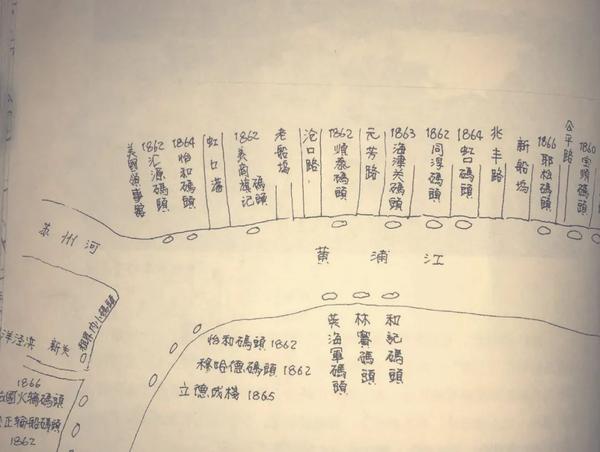 美國領事署
1862
汇源碼頭
1864
怡和碼頭
虹口港
1862
美商旗记碼頭
老船塢
沧口路
1862
順泰碼頭
元芳路
1863
海津关碼頭
1862
同淳碼頭
1864
虹口碼頭
兆丰路
新船塢
1866
耶松碼頭
公平路
1860
宝順碼頭
苏州河
黄浦江
怡和碼頭 1862
穆哈德碼頭 1862
立德成棧 1865
英海軍碼頭
林賽碼頭
和記碼頭
洋涇浜 新关
1866
國火犄碼頭
正輪船碼頭
1862